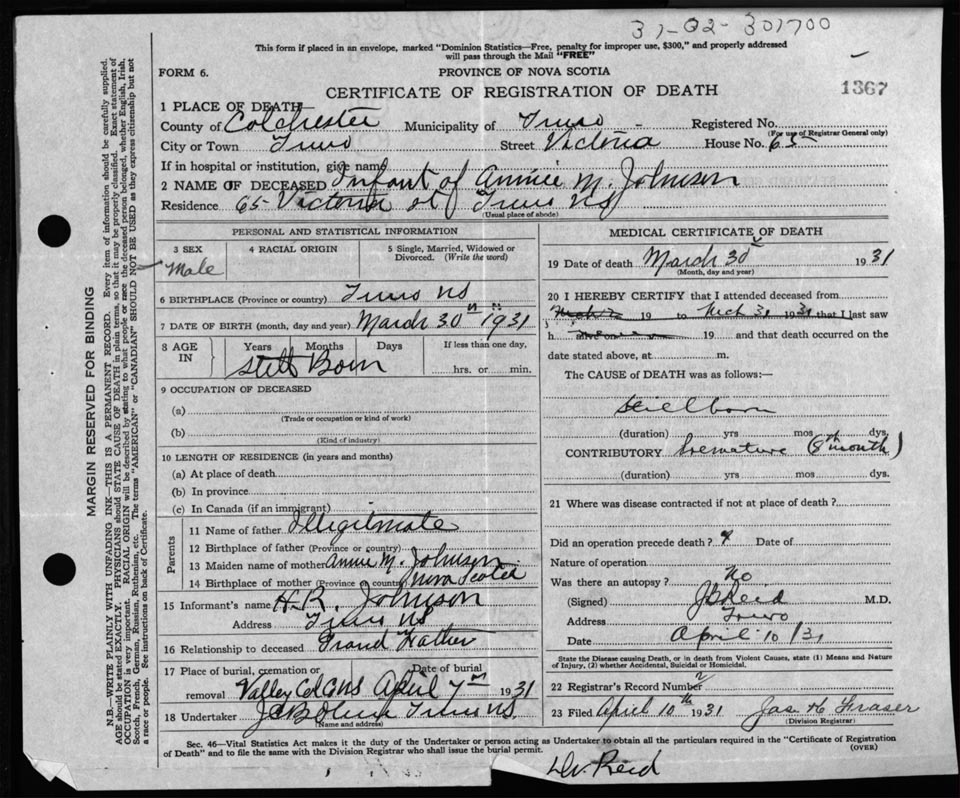 31-02-301700
This form if placed in an envelope, marked "Dominion Statistics—Free, penalty for improper use, $300," and properly addressed
will pass through the Mail "FREE"
FORM 6.
PROVINCE OF NOVA SCOTIA
CERTIFICATE OF REGISTRATION OF DEATH
1367
1 PLACE OF DEATH
County of Colchester Municipality of Truro Registered No.
(For use of Registrar General only)
City or Town Truro Street Victoria House No. 65
If in hospital or institution, give name
2 NAME OF DECEASED Infant of Annie M. Johnson
Residence 65 Victoria st Truro NS
(Usual place of abode)
PERSONAL AND STATISTICAL INFORMATION
3 SEX 4 RACIAL ORIGIN 5 Single, Married, Widowed or Divorced. (Write the word)
Male
6 BIRTHPLACE (Province or country) Truro NS
7 DATE OF BIRTH (month, day and year) March 30th 1931
8 AGE IN Years Months Days If less than one day,
Still Born hrs. or min.
9 OCCUPATION OF DECEASED
(a)
(Trade or occupation or kind of work)
(b)
(Kind of industry)
10 LENGTH OF RESIDENCE (in years and months)
(a) At place of death
(b) In province
(c) In Canada (if an immigrant)
Parents
11 Name of father Illegitmate
12 Birthplace of father (Province or country)
13 Maiden name of mother Annie M. Johnson
14 Birthplace of mother (Province or country) Nova Scotia
15 Informant's name H.R. Johnson
Address Truro NS
16 Relationship to deceased Grand Father
17 Place of burial, cremation or removal Date of burial
Valley Col Gns April 7th 1931
18 Undertaker Truro NS
(Name and address)
MEDICAL CERTIFICATE OF DEATH
19 Date of death March 30 1931
(Month, day and year)
20 I HEREBY CERTIFY that I attended deceased from
19 to Mch 31 1931 that I last saw
h alive on 19 and that death occurred on the
date stated above, at m.
The CAUSE of DEATH was as follows:—
Stillborn
(duration) yrs mos dys.
CONTRIBUTORY Premature (8th month)
(duration) yrs mos dys.
21 Where was disease contracted if not at place of death?
Did an operation precede death? Date of
Nature of operation
Was there an autopsy? No
(Signed) J B Reid M.D.
Address Truro
Date April 10/31
State the Disease causing Death, or in death from Violent Causes, state (1) Means and Nature
of Injury, (2) whether Accidental, Suicidal or Homicidal.
22 Registrar's Record Number
23 Filed April 10th 1931 Jas H Fraser
(Division Registrar)
Sec. 46—Vital Statistics Act makes it the duty of the Undertaker or person acting as Undertaker to obtain all the particulars required in the "Certificate of Registration
of Death" and to file the same with the Division Registrar who shall issue the burial permit.
(OVER)
Dr. Reid
MARGIN RESERVED FOR BINDING
N.B.—WRITE PLAINLY WITH UNFADING INK—THIS IS A PERMANENT RECORD. Every item of information should be carefully supplied.
AGE should be stated EXACTLY. PHYSICIANS should STATE CAUSE OF DEATH in plain terms, so that it may be properly classified. Exact statement of
OCCUPATION is very important. RACIAL ORIGIN will be described by stating to what people or race the deceased person belonged, whether English, Irish,
Scotch, French, German, Russian, Ruthenian, etc. The terms "AMERICAN" or "CANADIAN" SHOULD NOT BE USED as they express citizenship but not
a race or people. See instructions on back of Certificate.